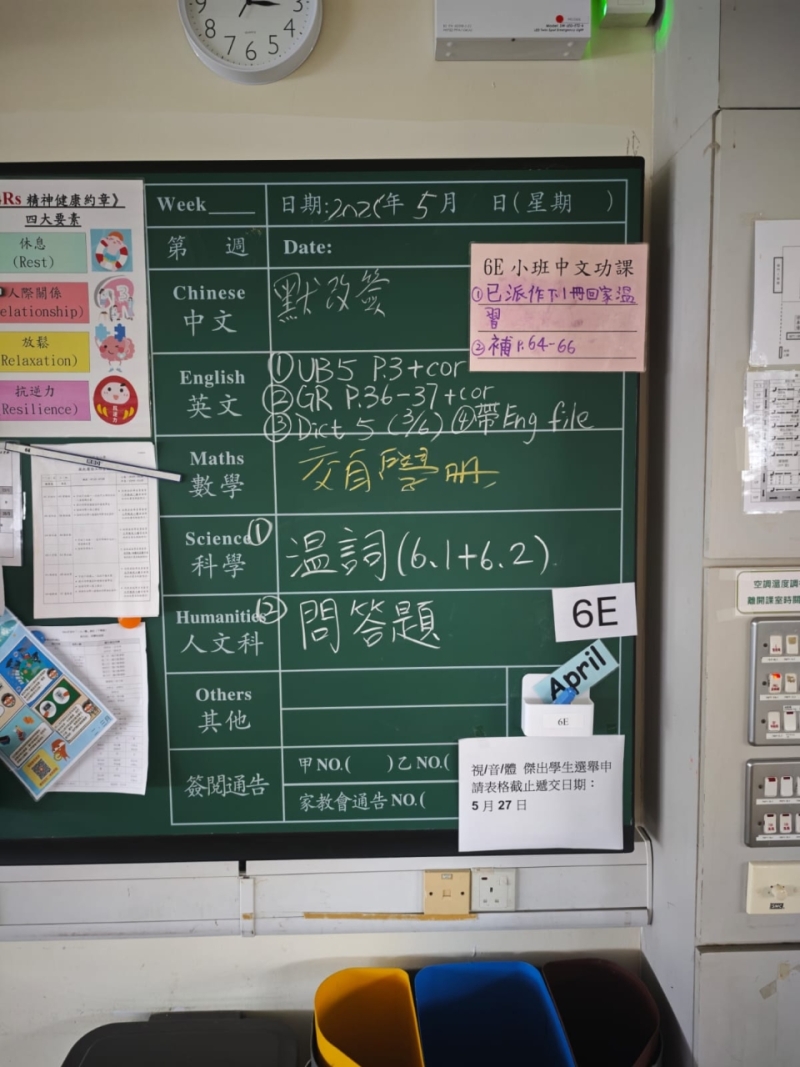 9
3
8
7
6
5
4
Rs 精神健康約章》
四大要素
休息
(Rest)
人際關係
elationship)
放鬆
Relaxation)
抗逆力
Resilience)
Week
日期:
年 5月 日(星期 )
第 週
Date:
Chinese
中文
默改簽
6E 小班中文功課
①已派作下1冊回家温
習
②補 P.64-66
English
英文
①UB5 P.3+cor
②GR P.36-37+cor
③Dict 5 (3/6) ④帶Eng file
Maths
數學
交自學冊
Science
科學
① 温詞(6.1+6.2)
Humanities
人文科
② 問答題
6E
April
6E
Others
其他
簽閱通告
甲NO.( )乙NO.(
家教會通告NO.(
視/音/體 傑出學生選舉申
請表格截止遞交日期：
5 月 27 日
空調溫度調
離開課室時關